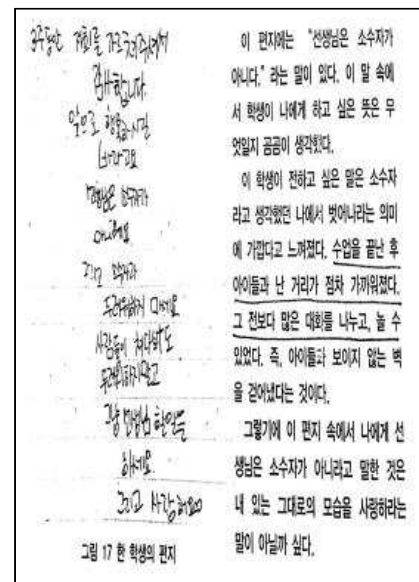 저희를 가르쳐주셔서
감사합니다.
앞으로 행복하시길
바라고요
선생님은 소수자가
아니에요
두려워하지 마세요
사람들이 쳐다봐도
두려워하지말고
그냥 선생님 할일을
하세요.
그리고 사랑해요
그림 17 한 학생의 편지
이 편지에는 "선생님은 소수자가
아니다." 라는 말이 있다. 이 말 속에
서 학생이 나에게 하고 싶은 뜻은 무
엇일지 곰곰이 생각했다.
이 학생이 전하고 싶은 말은 소수자
라고 생각했던 나에서 벗어나라는 의미
에 가깝다고 느껴졌다. 수업을 끝난 후
아이들과 난 거리가 점차 가까워졌다.
그 전보다 많은 대화를 나누고, 놀 수
있었다. 즉, 아이들과 보이지 않는 벽
을 걷어냈다는 것이다.
그렇기에 이 편지 속에서 나에게 선
생님은 소수자가 아니라고 말한 것은
내 있는 그대로의 모습을 사랑하라는
말이 아닐까 싶다.